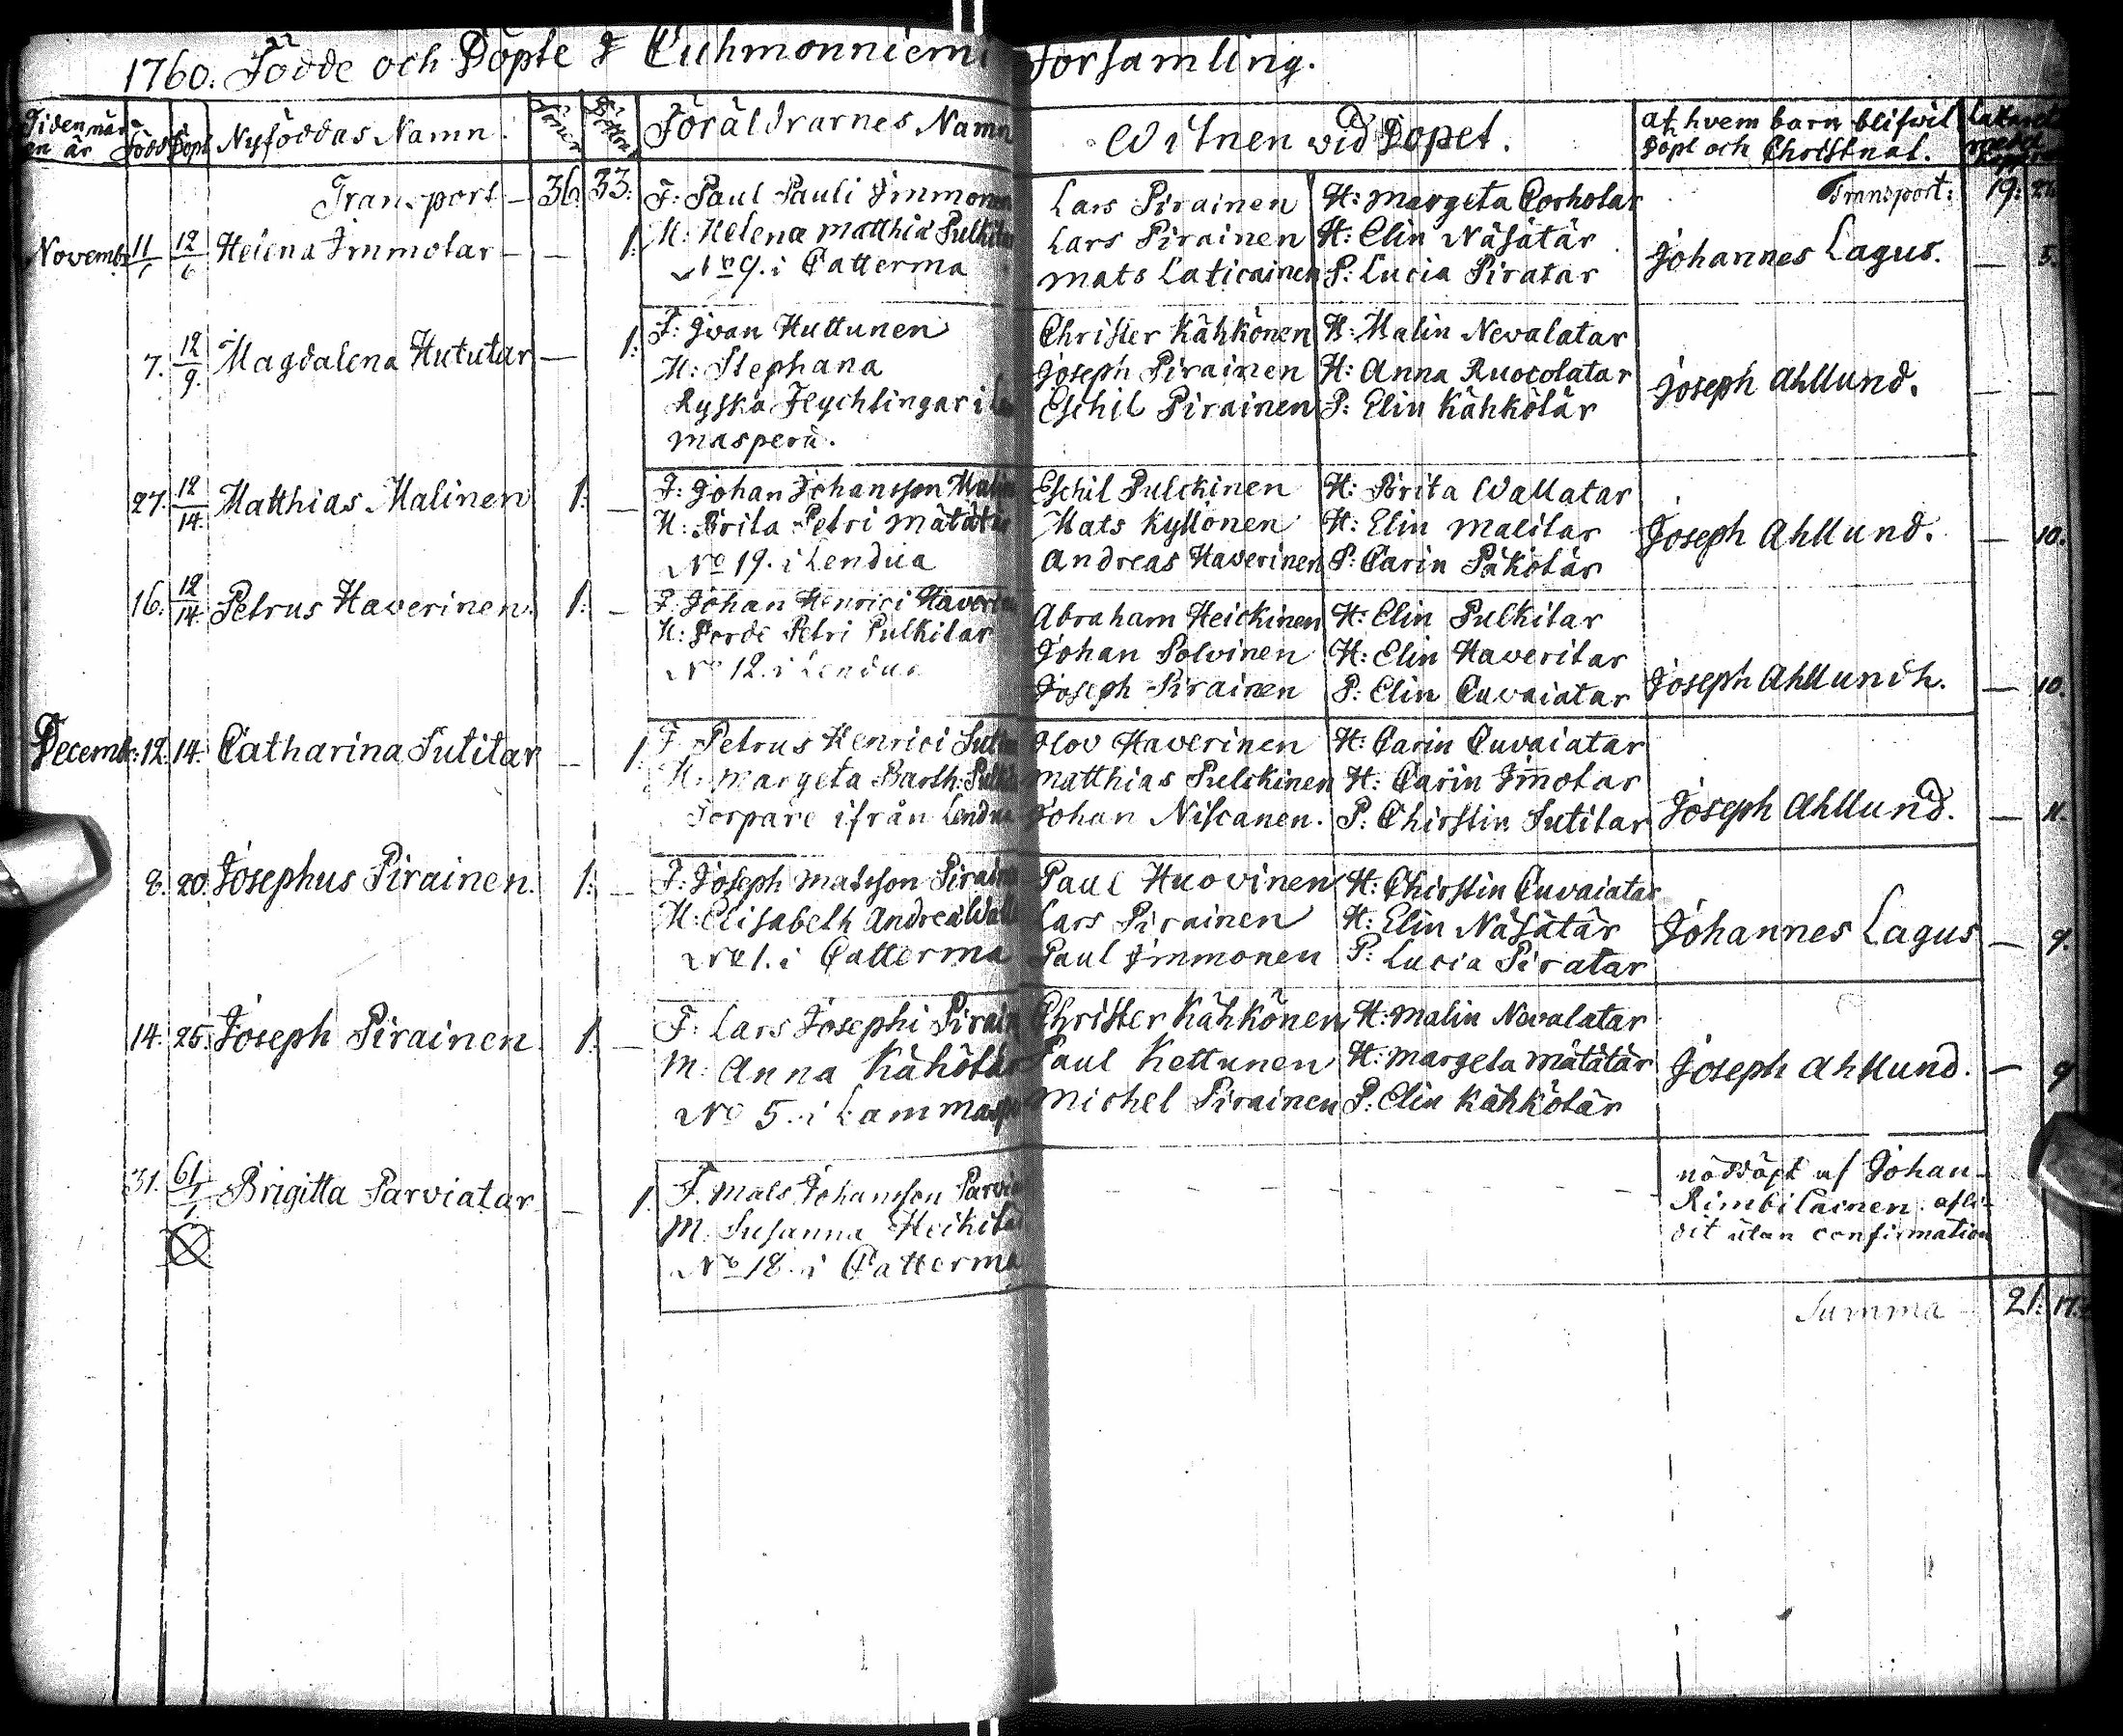 1760. Födde och Döpte i Cuhmonniemi Församling.
Tiden när
en är Född Döpt Nyföddas Namn. Söner Döttrar Föräldrarnes Namn Witnen vid Dopet. af hvem barn blifvit
döpt och Christnat.
Transport — 36. 33: F: Paul Pauli Immonen Lars Pirainen H: Margeta Corhotar Transport: 19:
Novemb: 11/1 12/6 Helena Immotar — — 1. M: Helena Matthiæ Pulkitar Lars Pirainen H: Elin Näsätär Johannes Lagus. — 5.
No 9. i Catterma Mats Laticainen P: Lucia Piratar
7. 12/9. Magdalena Hututar — 1. F: Ivan Huttunen Christer Kähkönen H: Malin Nevalatar
M: Stephana Joseph Pirainen H: Anna Ruocolatar Joseph Ahllund. — —
Ryska Flychtingar i Lam Eschil Pirainen P: Elin Kähkötär
masperä.
27. 12/14. Matthias Malinen 1. — F: Johan Johansson Malin Eschil Pulckinen H: Brita Wallatar
M: Brita Petri Mätätär Mats Kyllönen H: Elin Malitar Joseph Ahllund. — 10.
No 19. i Lendua Andreas Haverinen P: Carin Päkötär
16. 12/14. Petrus Haverinen. 1. — F: Johan Henrici Haverin Abraham Heickinen H: Elin Pulkitar
M: Petri Pulkitar Johan Polvinen H: Elin Haveritar Joseph Ahllundh. — 10.
No 12. i Lendua Joseph Pirainen P: Elin Cuvaiatar
Decemb: 12. 14. Catharina Sutitar — 1. F: Petrus Henrici Suti Olov Haverinen H: Carin Cuvaiatar
M: Margeta Barth: Pulki Matthias Pulckinen H: Carin Im̄otar Joseph Ahllund. — 11.
Torpare ifrån Lendua Johan Niscanen. P: Chirstin Sutitar
8. 20. Josephus Pirainen. 1. — F: Joseph Matsson Pirain Paul Huovinen H: Chirstin Cuvaiatar
M: Elisabeth Andreæ Walla Lars Pirainen H: Elin Näsätär Johannes Lagus — 9.
No 1. i Catterma Paul Immonen P: Lucia Piratar
14. 25. Joseph Pirainen 1. — F: Lars Josephi Pirain Christer Kähkönen H: Malin Nevalatar
M: Anna Kähötär Paul Kettunen H: Margeta Mätätär Joseph Ahllund. — 9
No 5. i Lammasp Michel Pirainen P: Elin Kähkötär
31. 61/1 Brigitta Parviatar — 1. F. Mats Johansson Parvi — — — — — nöddöpt af Johan
M. Susanna Heikitar Rimbiläinen. afli-
No 18. i Catterma dit utan confirmation
Summa 21: 17.